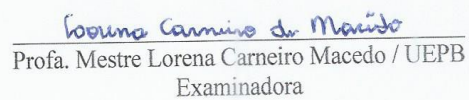 Lorena Carneiro de Macêdo
Profa. Mestre Lorena Carneiro Macedo / UEPB
Examinadora